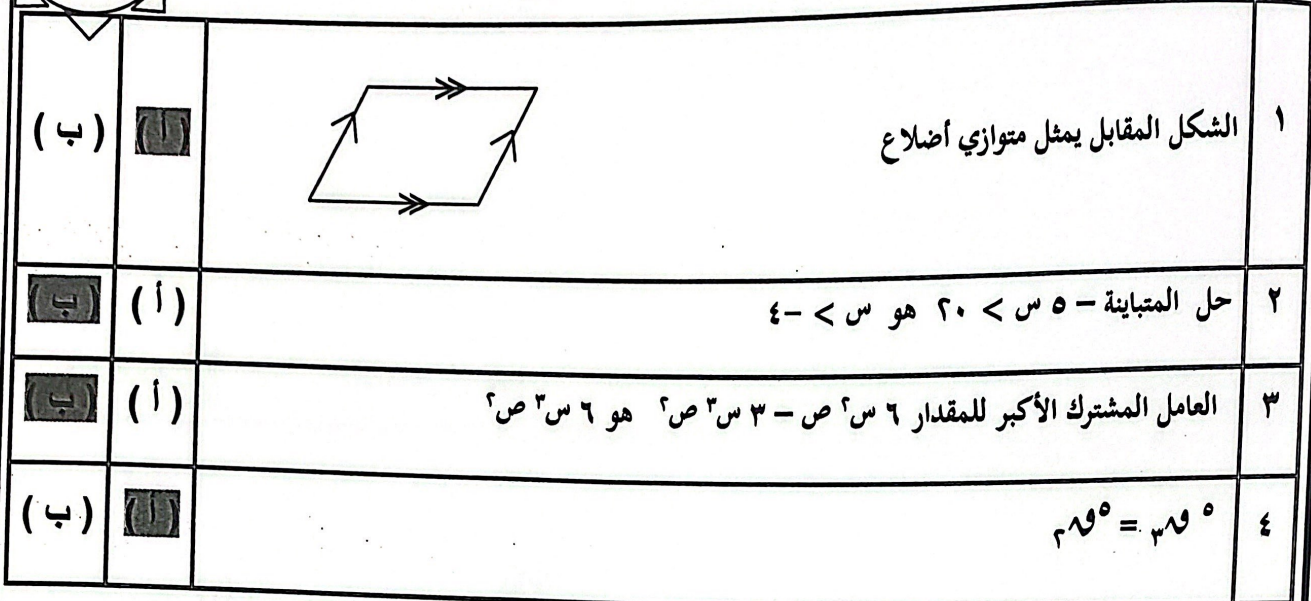 ١ الشكل المقابل يمثل متوازي أضلاع (أ) (ب)
٢ حل المتباينة – ٥ س > ٢٠ هو س > -٤ (أ) (ب)
٣ العامل المشترك الأكبر للمقدار ٦ س٢ ص – ٣ س٣ ص٢ هو ٦ س٣ ص٢ (أ) (ب)
٤ ٥ق٣ = ٥ق٢ (أ) (ب)